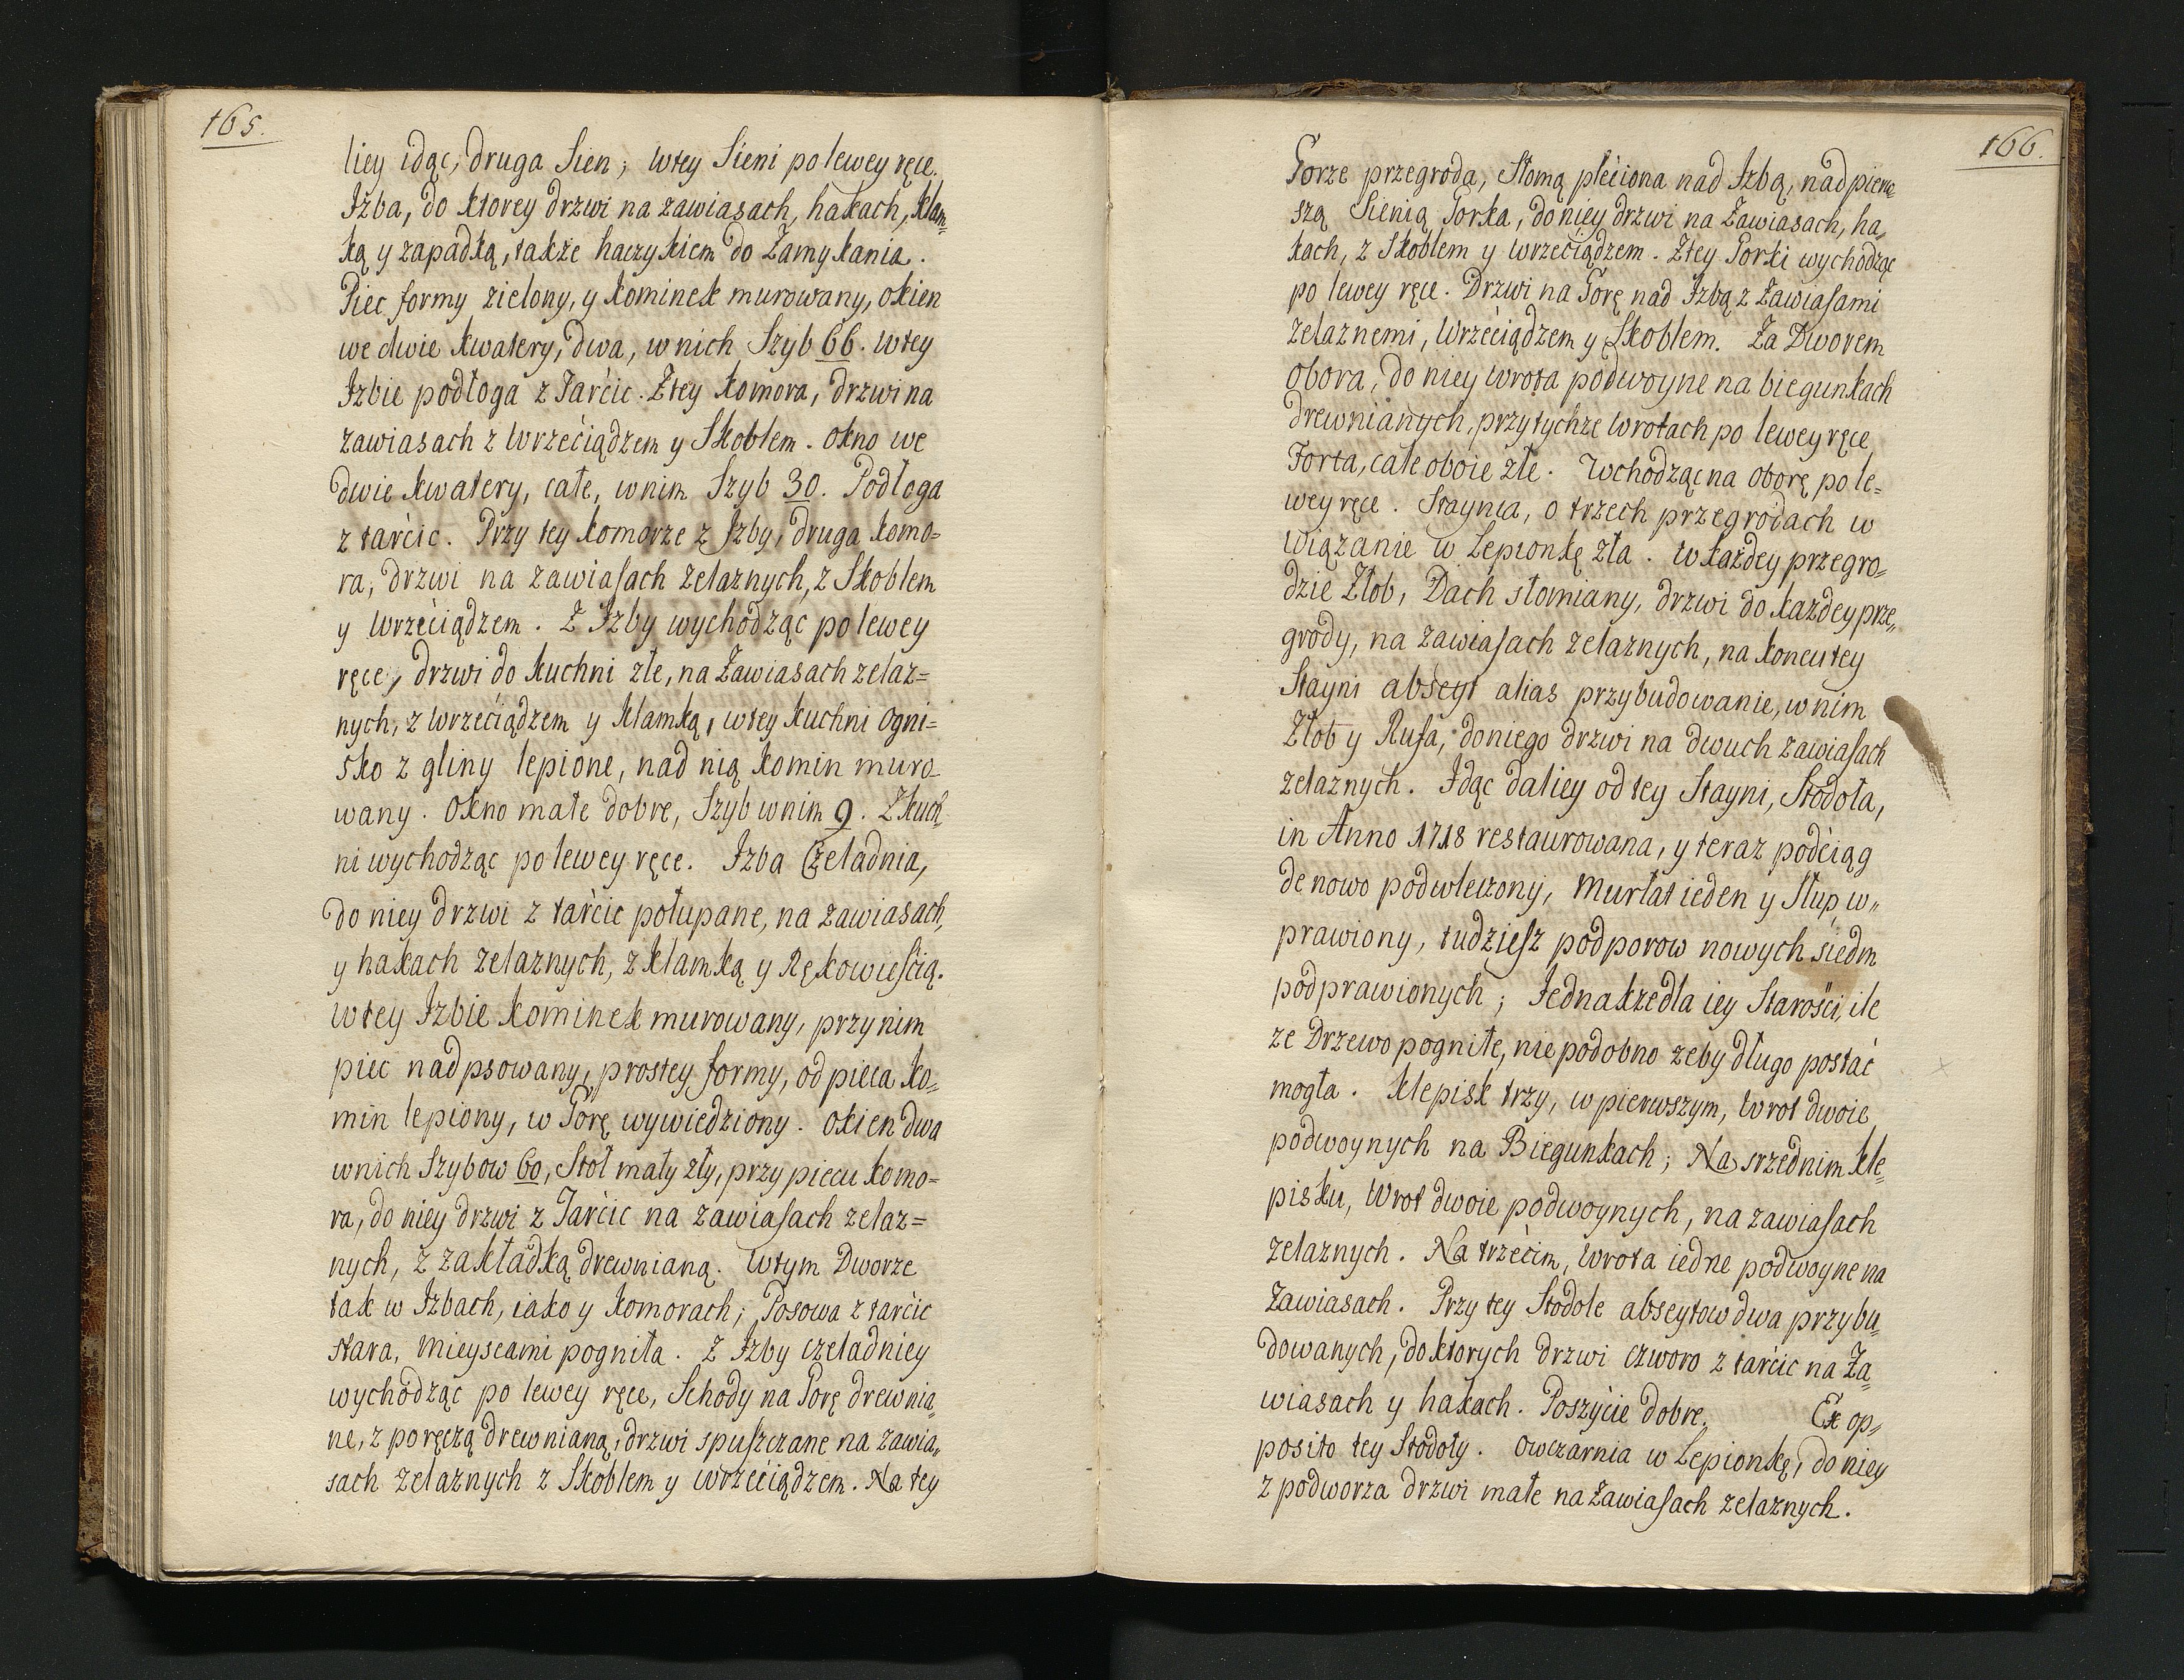 165.
liey idąc, druga Sien; wtey Sieni po lewey ręce.
Izba, do ktorey drzwi na zawiasach, hakach, klam=
ką y zapadką, także haczykiem do Zamykania.
Piec formy zielony, y kominek murowany, okien
we dwie kwatery, dwa, w nich Szyb 66. wtey
Izbie podłoga z Tarćic. Ztey komora, drzwi na
zawiasach z Wrzećiądzem y Skoblem. okno we
dwie kwatery, całe, w nim Szyb 30. Podłoga
z tarćic. Przy tey komorze z Izby, druga komo=
ra, drzwi na zawiasach zelaznych, z Skoblem
y Wrzećiądzem. Z Izby wychodząc po lewey
ręce, drzwi do kuchni złe, na Zawiasach zelaz=
nych, z Wrzećiądzem y klamką, wtey kuchni Ogni=
sko z gliny lepione, nad nią komin muro
wany. Okno małe dobre, Szyb w nim 9. Z kuch=
ni wychodząc po lewey ręce. Izba Czeladnia,
do niey drzwi z tarćic połupane, na zawiasach,
y hakach zelaznych, z klamką y Rękowieścią.
wtey Izbie kominek murowany, przy nim
piec nadpsowany, prostey formy, od pieca ko=
min lepiony, w Gorę wywiedziony. Okien dwa
wnich Szybow 60, Stoł mały zły, przy piecu komo=
ra, do niey drzwi z Tarćic na zawiasach zelaz=
nych, z zakładką drewnianą. Wtym Dworze
tak w Izbach, iako y komorach; Posowa z tarćic
stara, mieyscami pogniła. Z Izby czeladniey
wychodząc po lewey ręce, Schody na Gorę drewnia=
ne, z poręczą drewnianą, drzwi spuszczane na zawia=
sach zelaznych z Skoblem y wrzećiądzem. Na tey
166.
Gorze przegroda, Słomą plećiona nad Izbą, nad pierw=
szą Sienią Gorka, do niey drzwi na Zawiasach, ha=
kach, z Skoblem y wrzećiądzem. Ztey Gorki wychodząc
po lewey ręce. Drzwi na Gorę nad Izbą z Zawiasami
zelaznemi, Wrzećiądzem y Skoblem. Za Dworem
Obora, do niey wrota podwoyne na biegunkach
drewnianych, przy tychze Wrotach po lewey ręce
Forta, całe oboie złe. Wchodząc na oborę po le=
wey ręce. Staynia, o trzech przegrodach w
wiązanie w Lepionkę zła. w każdey przegro=
dzie Złob, Dach słomiany, drzwi do każdey prze=
grody, na zawiasach zelaznych, na koncu tey
Stayni abseyt alias przybudowanie, w nim
Złob y Rufa, do niego drzwi na dwuch zawiasach
zelaznych. Idąc daliey od tey Stayni, Stodoła,
in Anno 1718 restaurowana, y teraz podćiąg
de nowo podwleczony, Murłat ieden y Słup w=
prawiony, tudziesz podporow nowych siedm
podprawionych; Jednakze dla iey Starości, ile
ze Drzewo pogniłe, nie podobno zeby długo postać
mogła. klepisk trzy, w pierwszym, Wrot dwoie
podwoynych na Biegunkach; Na srzednim kle=
pisku, Wrot dwoie podwoynych, na zawiasach
zelaznych. Na trzećim, Wrota iedne podwoyne na
Zawiasach. Przy tey Stodole abseytow dwa przybu=
dowanych, do ktorych drzwi czworo z tarćic na Za=
wiasach y hakach. Poszyćie dobre. Ex op=
posito tey Stodoły. Owczarnia w Lepionkę, do niey
z podworza drzwi małe na Zawiasach zelaznych.